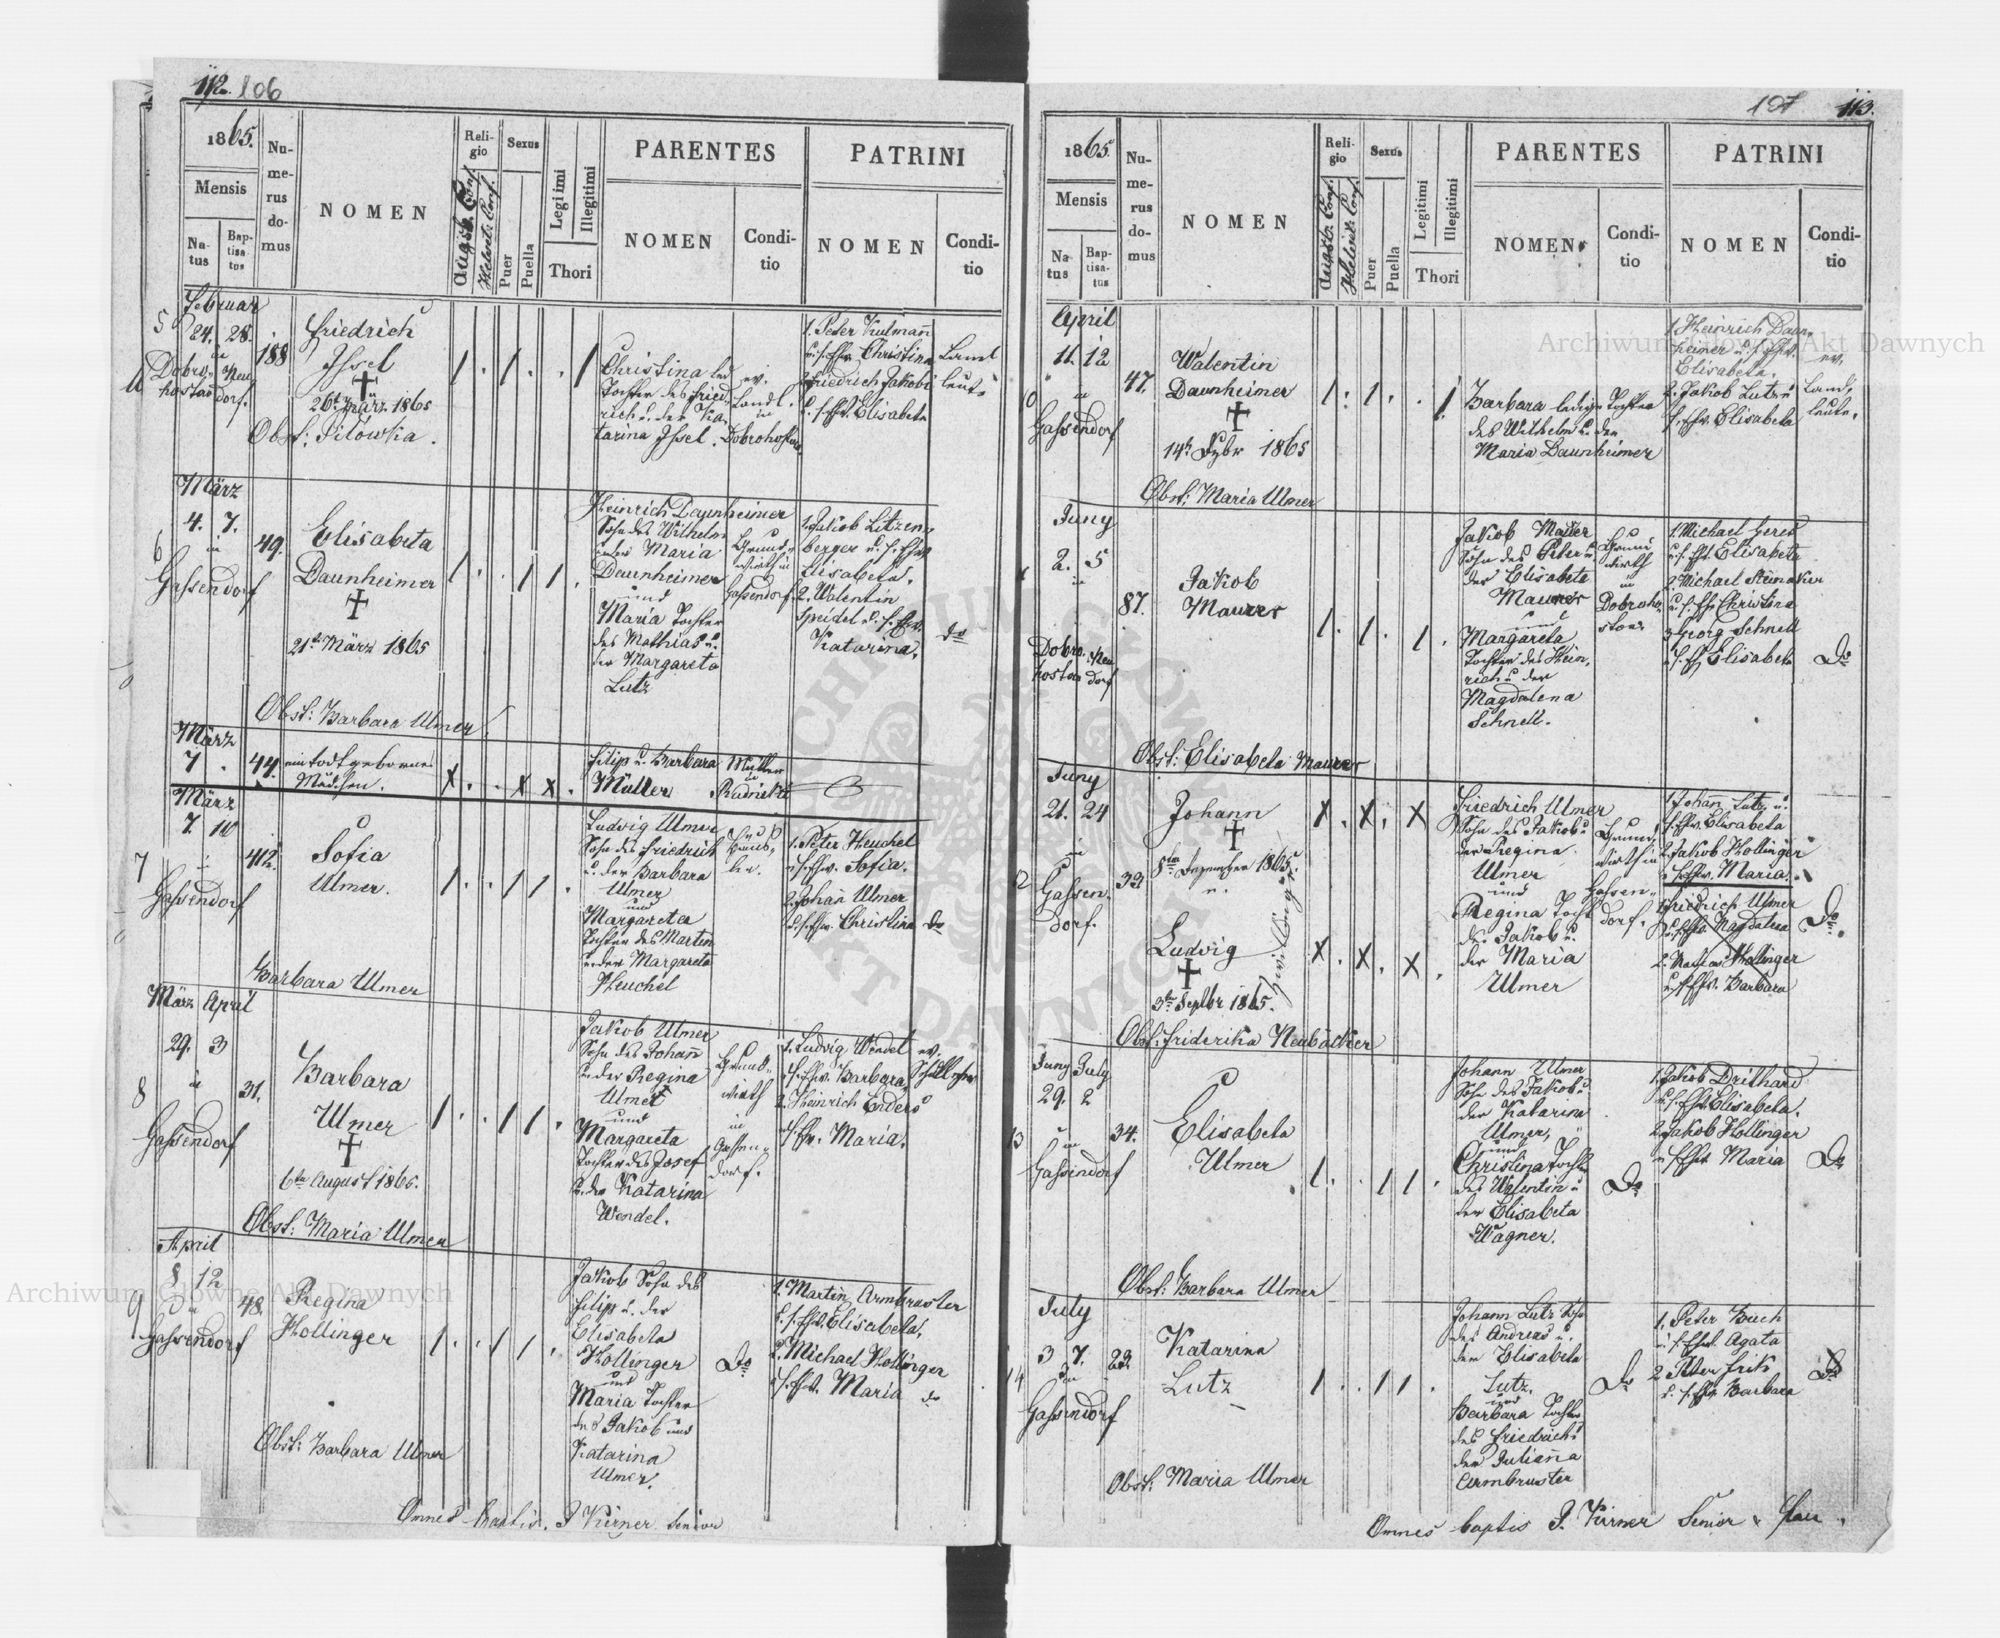 112. 106
1865.
Mensis
Na-
tus
Bap-
tisa-
tus
Nu-
me-
rus
do-
mus
NOMEN
Reli-
gio
Augsb. Conf.
Helvet. Conf.
Sexus
Puer
Puella
Legitimi
Illegitimi
Thori
PARENTES
NOMEN
Condi-
tio
PATRINI
NOMEN
Condi-
tio
Februar
5
24. 28.
in
Dobro- Neu
hostau dorf.
188
Friedrich
Issel
26ten März 1865
Obst: Pilowka.
Christina led
Tochter des Fried-
rich u. der Ka-
tarina Issel.
ev.
Landl.
in
1. Peter Kulmann
u. s. Ehw. Christina
2. Friedrich Jakobi
u. s. Ehw. Elisabeta
Land
leute
März
4. 7.
6
in
Gassendorf
49.
Elisabeta
Daunheimer
21t März 1865
Obst: Barbara Ulmer
Heinrich Daunheimer
Sohn des Wilhelm
u. der Maria
Daunheimer
und
Maria Tochter
des Mathias u.
der Margareta
Lutz
Grund-
wirth in
Gassendorf
1. Jakob Litzen-
berger u. s. Ehw.
Elisabeta.
2. Valentin
Speidel u. s. Ehw.
Katarina.
do
März
7.
44.
ein todtgeborenes
Mädchen.
Filip u. Barbara
Müller
Müller
in
März
7. 10
7
in
Gassendorf
412.
Sofia
Ulmer.
Barbara Ulmer
Ludwig Ulmer
Sohn des Friedrich
u. der Barbara
Ulmer
und
Margareta
Tochter des Martin
u. der Margareta
Heuchel
Häus-
ler.
1. Peter Heuchel
u. s. Ehw. Sofia.
2. Johan Ulmer
u. s. Ehw. Christina
do
März April
29. 3
8
in
Gassendorf
31.
Barbara
Ulmer
6ten August 1865.
Obst: Maria Ulmer
Jakob Ulmer
Sohn des Johann
u. der Regina
Ulmer
und
Margareta
Tochter des Josef
u. der Katarina
Wendel.
Grund-
wirth
in
Gassen-
dorf.
1. Ludwig Wendel
u. s. Ehw. Barbara
2. Heinrich Enders
u. s. Ehw. Maria.
ev.
Schullehrer
April
8 12
9
in
Gassendorf
48.
Regina
Hollinger
Obst: Barbara Ulmer
Jakob Sohn des
Filip u. der
Elisabeta
Hollinger
und
Maria Tochter
des Jakob und
Katarina
Ulmer.
Do
1. Martin Armbruster
u. s. Ehw. Elisabeta.
2. Michael Hollinger
u. s. Ehw. Maria
do
Omnes baptis. J. Kirner Senior
107 113.
1865.
Mensis
Na-
tus
Bap-
tisa-
tus
Nu-
me-
rus
do-
mus
NOMEN
Reli-
gio
Augsb. Conf.
Helvet. Conf.
Sexus
Puer
Puella
Legitimi
Illegitimi
Thori
PARENTES
NOMEN
Condi-
tio
PATRINI
NOMEN
Condi-
tio
April
11. 12
in
Gassendorf
47.
Walentin
Daunheimer
14t 1865
Obst: Maria Ulmer
Barbara ledige Tochter
des Wilhelm u. der
Maria Daunheimer
1. Heinrich Daun-
heimer u. s. Ehw.
Elisabeta.
2. Jakob Lutz u
s. Ehw. Elisabeta
ev.
Land-
leute.
Juny
2. 5
in
Dobro- Neu
hostau dorf
87.
Jakob
Maurer
Obst: Elisabeta Maurer
Jakob Maurer
Sohn des Peter u
der Elisabeta
Maurer
und
Margareta
Tochter des Hein-
rich u der
Magdalena
Schnell.
Grund
wirth
in
Dobroho-
stau
1. Michael Gered
u. s. Ehw. Elisabeta
2. Michael Steinakier
u. s. Ehw. Christina
3. Georg Schnell
u. s. Ehw. Elisabeta
Do
Juny
21. 24
12
in
Gassen-
dorf.
33
Johann
8ten Dezember 1865.
u.
Ludwig
3ten Septbr 1865.
Zwillinge
Obst: Friderika Neubäcker
Friedrich Ulmer
Sohn des Jakob u
der Regina.
Ulmer
und
Regina Tocht
des Jakob u.
der Maria
Ulmer
Grund
wirth in
Gassen-
dorf.
1. Johann Lutz u.
s. Ehw. Elisabeta
2. Jakob Hollinger
u. s. Ehw. Maria.
1. Friedrich Ulmer
u. s. Ehw. Magdalena
2. Hollinger
u. s. Ehw. Barbara
Do
Juny July
29. 2
13
in
Gassendorf
34.
Elisabeta
Ulmer
Obst: Barbara Ulmer
Johann Ulmer
Sohn des Jakob u
der Katarina
Ulmer,
und
Christina Tochter
des Valentin u
der Elisabeta
Wagner.
Do
1. Jakob Drithard
u. s. Ehw. Elisabeta.
2. Jakob Hollinger
u. s. Ehw. Maria
Do
July
3 7.
14
in
Gassendorf
29.
Katarina
Lutz
Obst: Maria Ulmer
Johann Lutz Sohn
des Andreas u.
der Elisabeta
Lutz.
und
Barbara Tochter
des Friedrich u
der Julianna
Armbruster
Do
1. Peter Buch
u. s. Ehw. Agata
2. Peter Frik
u. s. Ehw. Barbara
Do
Omnes baptis J. Kirner Senior
Archiwum Główne Akt Dawnych
Archiwum Główne Akt Dawnych
ARCHIWUM GŁÓWNE AKT DAWNYCH